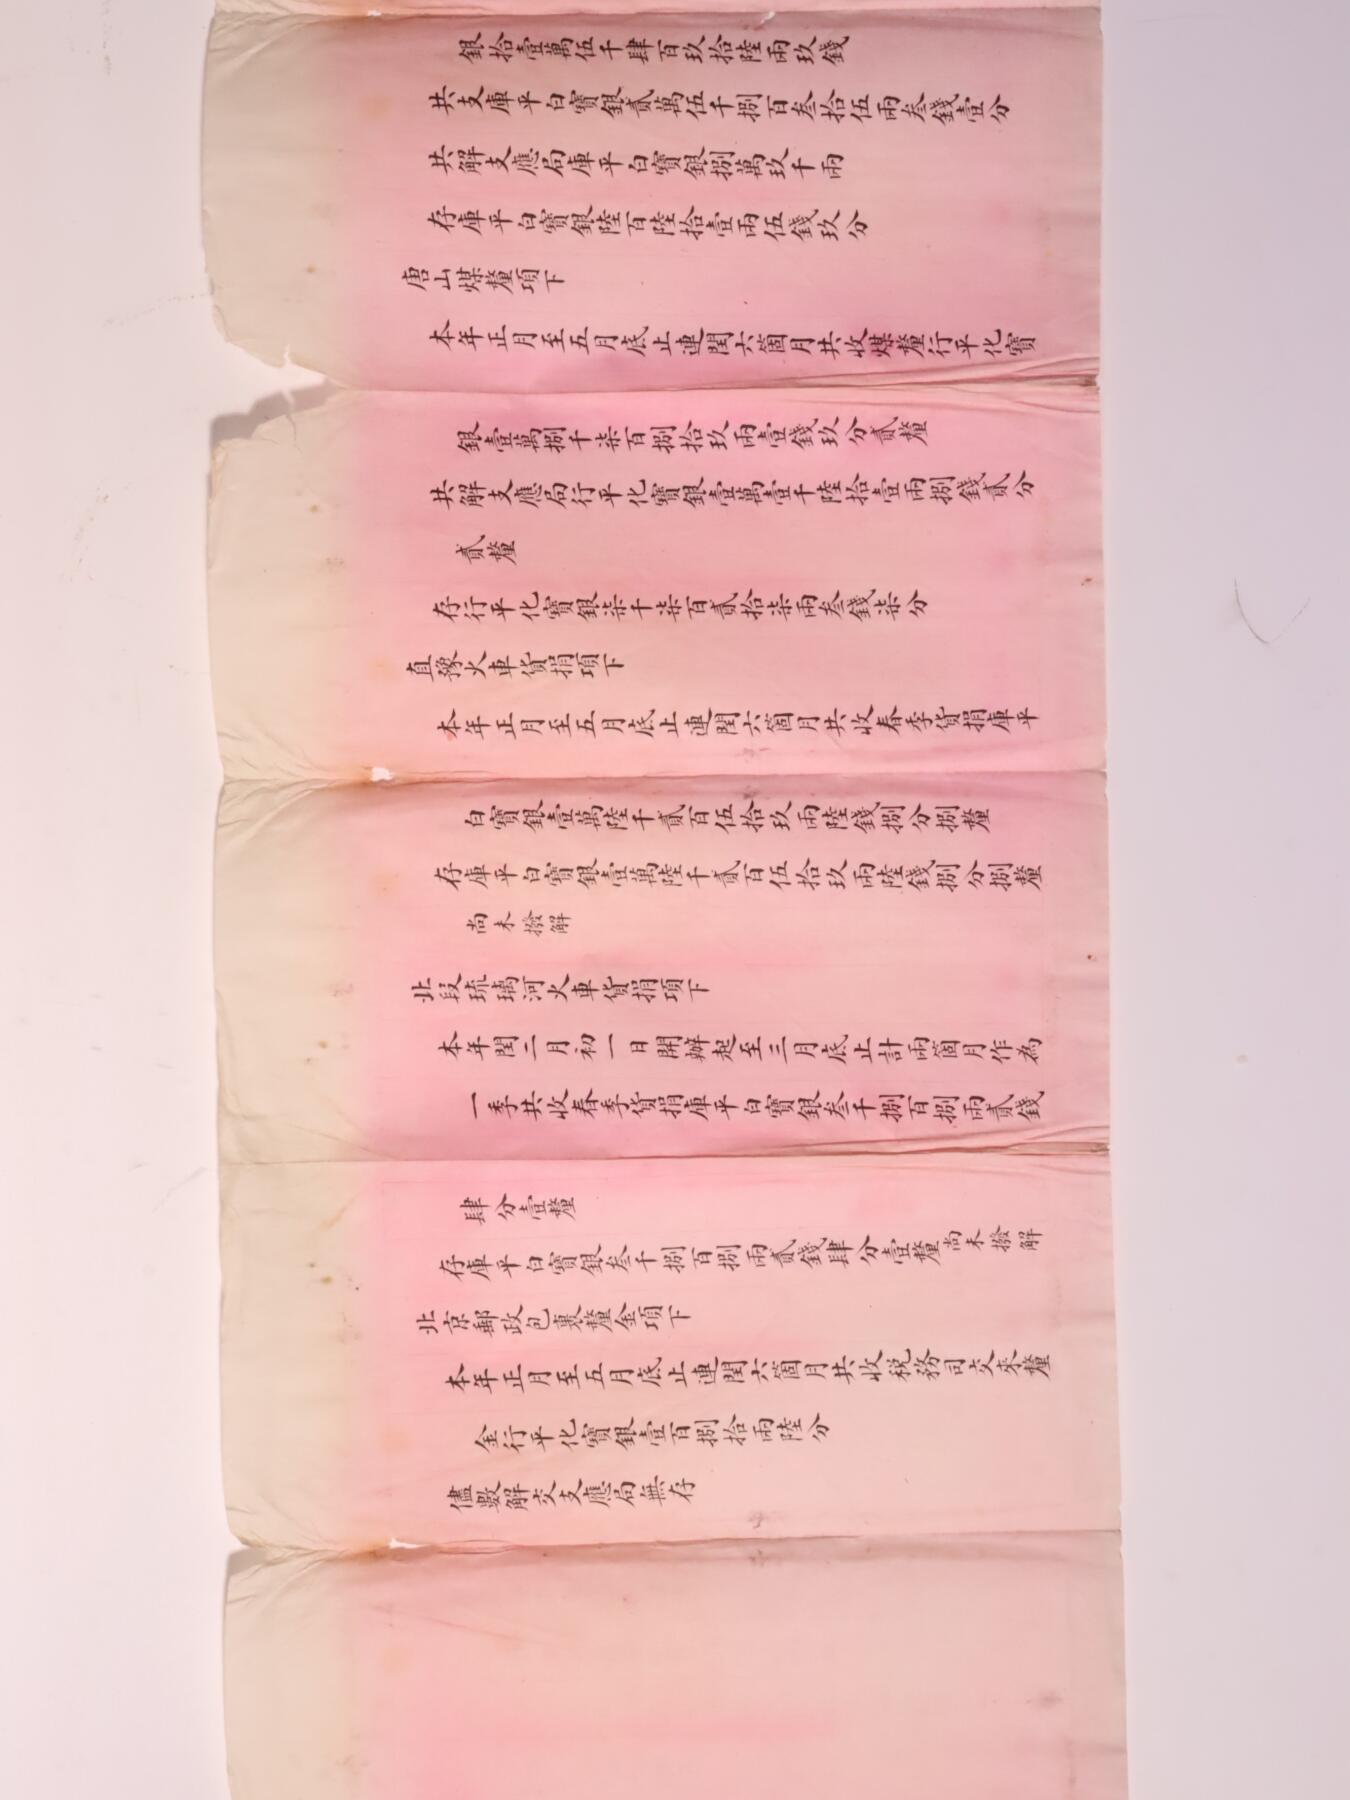 銀拾壹萬伍千肆百玖拾陸兩玖錢
共支庫平白寶銀貳萬伍千捌百叁拾伍兩叁錢壹分
共解支應局庫平白寶銀捌萬玖千兩
存庫平白寶銀陸百陸拾壹兩伍錢玖分
唐山煤釐項下
本年正月至五月底止連閏六箇月共收煤釐行平化寶
銀壹萬捌千柒百捌拾玖兩壹錢玖分貳釐
共解支應局行平化寶銀壹萬壹千陸拾壹兩捌錢貳分
貳釐
存行平化寶銀柒千柒百貳拾柒兩叁錢柒分
直豫火車貨捐項下
本年正月至五月底止連閏六箇月共收春季貨捐庫平
白寶銀壹萬陸千貳百伍拾玖兩陸錢捌分捌釐
存庫平白寶銀壹萬陸千貳百伍拾玖兩陸錢捌分捌釐
尚未撥解
北段琉璃河火車貨捐項下
本年閏二月初一日開辦起至三月底止計兩箇月作為
一季共收春季貨捐庫平白寶銀叁千捌百捌兩貳錢
肆分壹釐
存庫平白寶銀叁千捌百捌兩貳錢肆分壹釐尚未撥解
北京郵政包裹釐金項下
本年正月至五月底止連閏六箇月共收稅務司交來釐
金行平化寶銀壹百捌拾兩陸分
儘數解交支應局無存